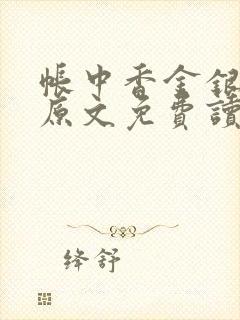 帳中香金銀
原文免費讀
绛舒